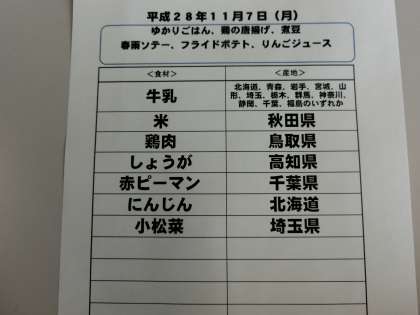 平成２８年１１月７日（月）
ゆかりごはん、鶏の唐揚げ、煮豆
春雨ソテー、フライドポテト、りんごジュース
＜食材＞ ＜産地＞
牛乳 北海道、青森、岩手、宮城、山形、埼玉、栃木、群馬、神奈川、静岡、千葉、福島のいずれか
米 秋田県
鶏肉 鳥取県
しょうが 高知県
赤ピーマン 千葉県
にんじん 北海道
小松菜 埼玉県